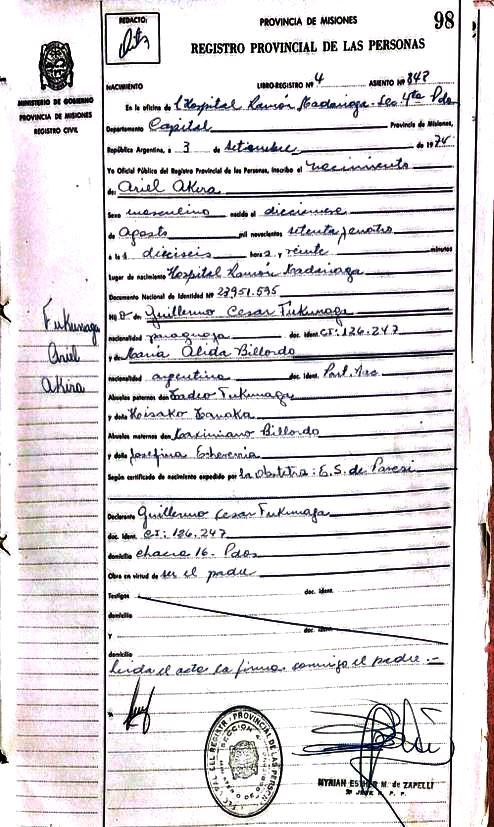 REDACTO:
PROVINCIA DE MISIONES
98
REGISTRO PROVINCIAL DE LAS PERSONAS
MINISTERIO DE GOBIERNO
PROVINCIA DE MISIONES
REGISTRO CIVIL
NACIMIENTO LIBRO-REGISTRO Nº 4 ASIENTO Nº 847
En la oficina de Hospital Ramón Madariaga - Sec 4ta Pdas
Departamento Capital Provincia de Misiones,
República Argentina, a 3 de setiembre de 1974
Yo Oficial Público del Registro Provincial de las Personas, inscribo el nacimiento
de: Ariel Akira
Sexo masculino nacido el diecinueve
de Agosto mil novecientos setenta y cuatro
a la s dieciseis hora s y veinte minutos
Lugar de nacimiento Hospital Ramón Madariaga
Documento Nacional de Identidad Nº 23951.595
Hij o de: Guillermo Cesar Fukunaga
nacionalidad paraguaya doc. ident. CI: 126.247
y de: María Olida Billordo
nacionalidad argentina doc. ident.
Abuelos paternos don Tadeo Fukunaga
y doña Hoisako Tanaka
Abuelos maternos don Maximiano Billordo
y doña Josefina Echeverria
Según certificado de nacimiento expedido por la Obstetra: E.S. de Paresi
Declarante Guillermo Cesar Fukunaga
doc. ident. CI: 126.247
domicilio chacra 16 - Pdas
Obra en virtud de ser el padre
Testigos doc. ident.
domicilio
y doc. ident.
domicilio
Leida el acta la firma conmigo el padre.-
Fukunaga
Ariel
Akira
MYRIAN ESTHER M. de ZAPELLI